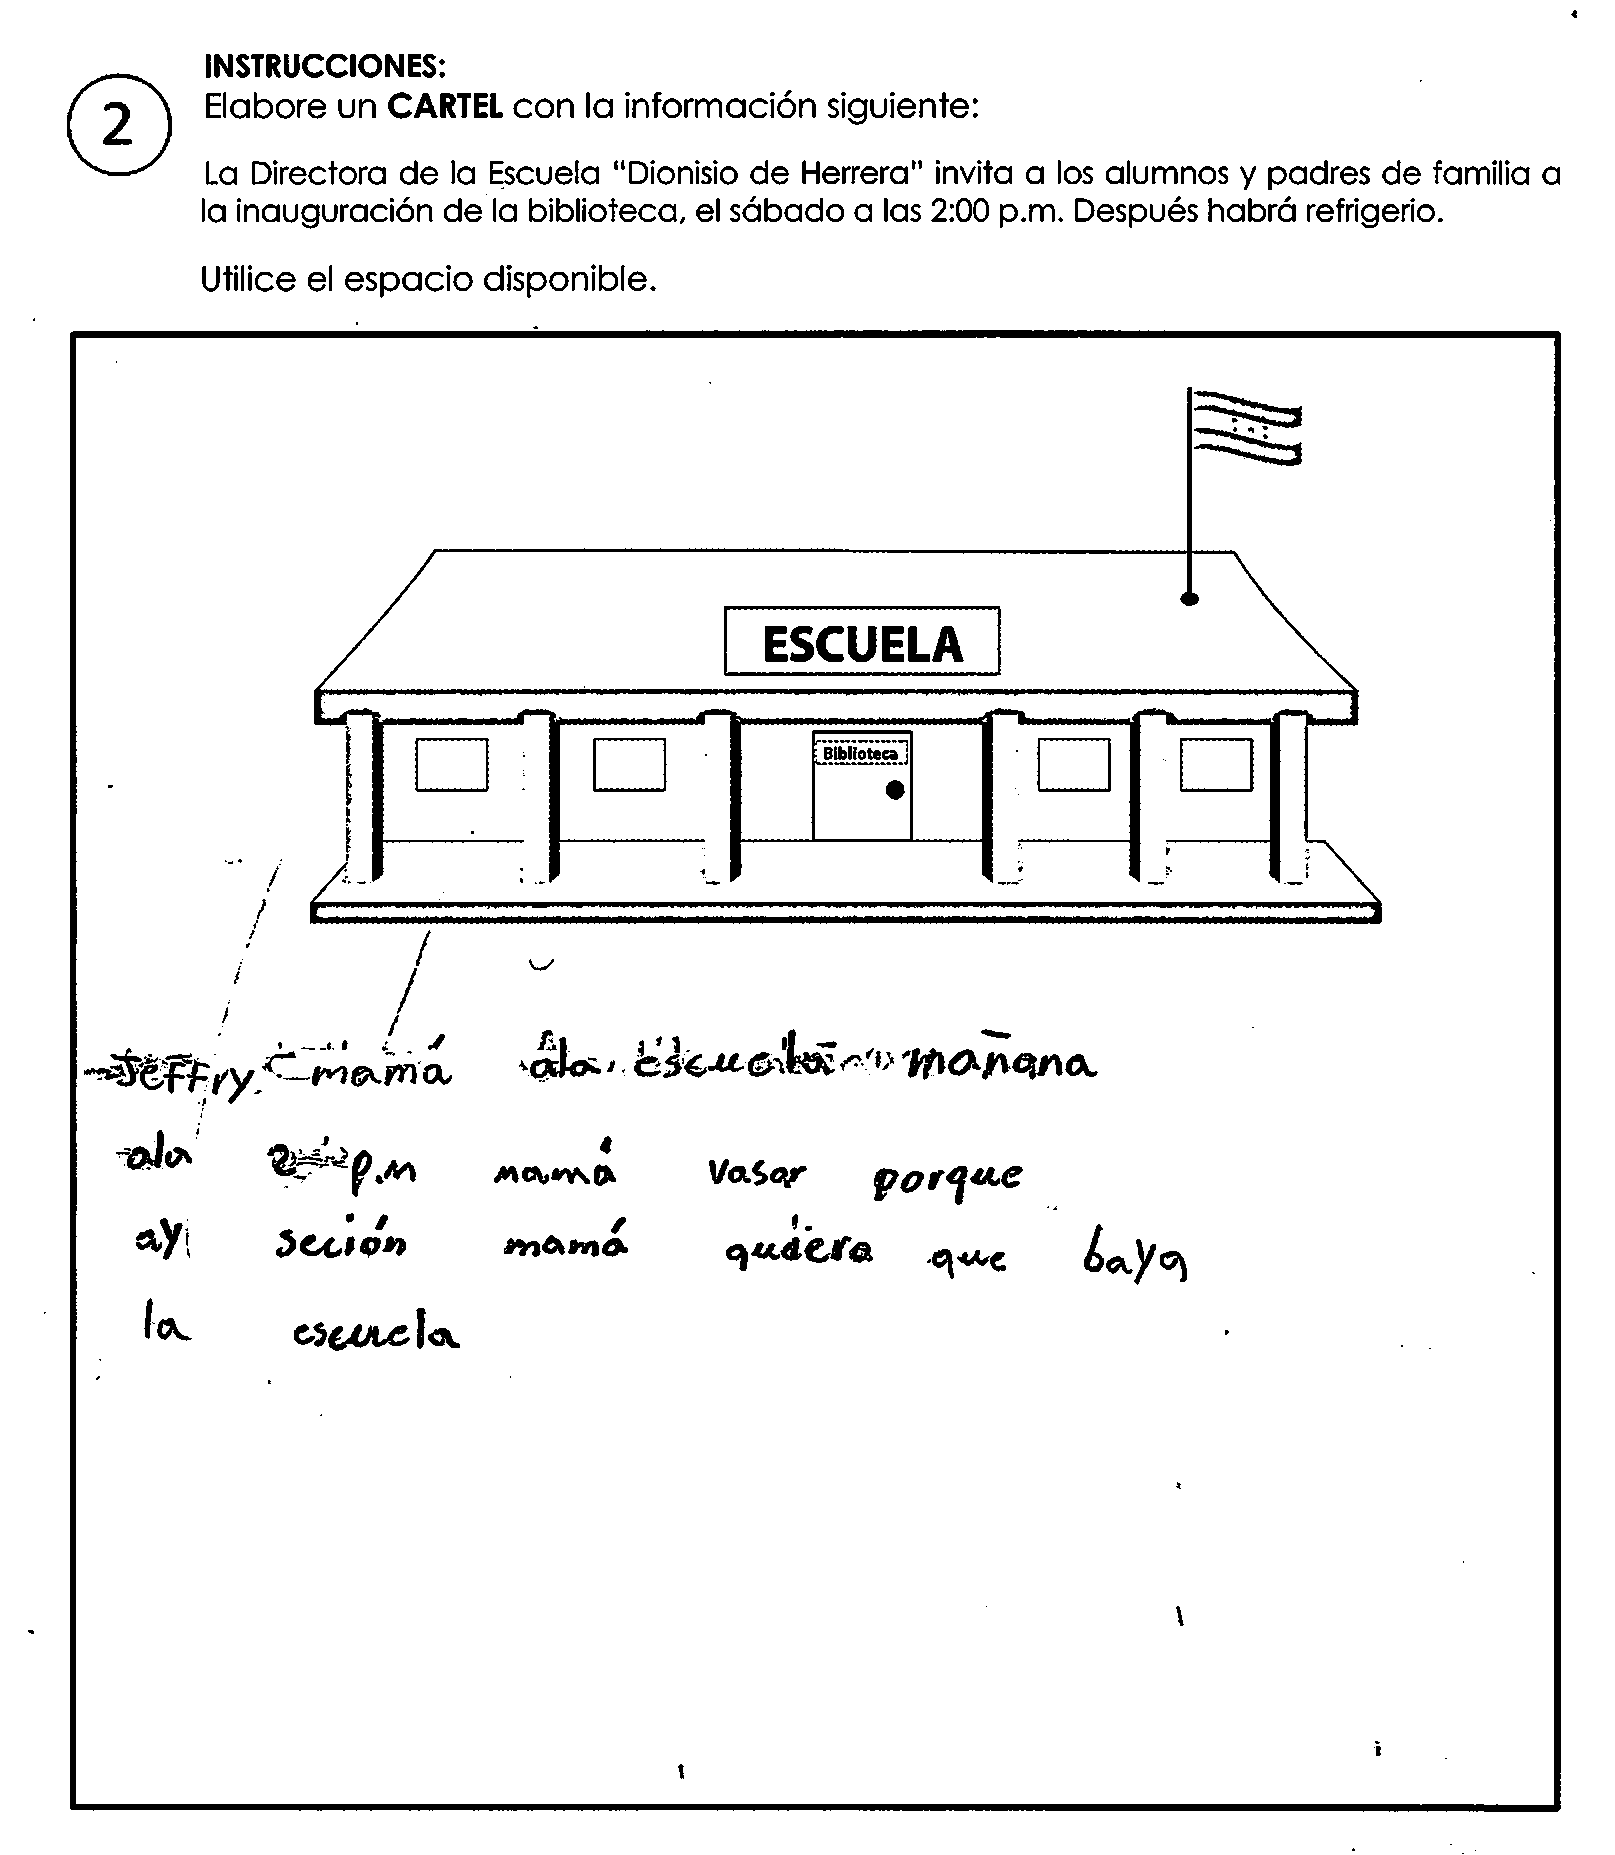 INSTRUCCIONES:
2
Elabore un CARTEL con la información siguiente:
La Directora de la Escuela "Dionisio de Herrera" invita a los alumnos y padres de familia a
la inauguración de la biblioteca, el sábado a las 2:00 p.m. Después habrá refrigerio.
Utilice el espacio disponible.
ESCUELA
Biblioteca
Jeffry. mamá ala escuela mañana
ala 2 p.m mamá vasar porque
ay seción mamá quiera que baya
la escuela